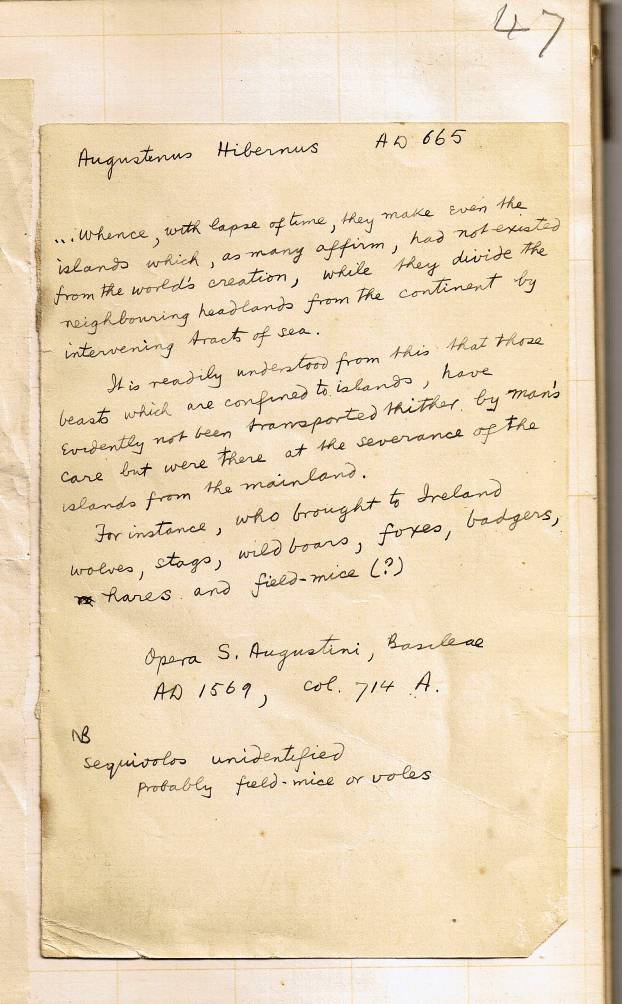 47
Augustinus Hibernus AD 665
... Whence, with lapse of time, they make even the
islands which, as many affirm, had not existed
from the world's creation, while they divide the
neighbouring headlands from the continent by
intervening tracts of sea.
It is readily understood from this that those
beasts which are confined to islands, have
evidently not been transported thither by man's
care but were there at the severance of the
islands from the mainland.
For instance, who brought to Ireland
wolves, stags, wild boars, foxes, badgers,
hares and field-mice (?)
Opera S. Augustini, Basileae
AD 1569, col. 714 A.
NB
Sequivolos unidentified
Probably field-mice or voles